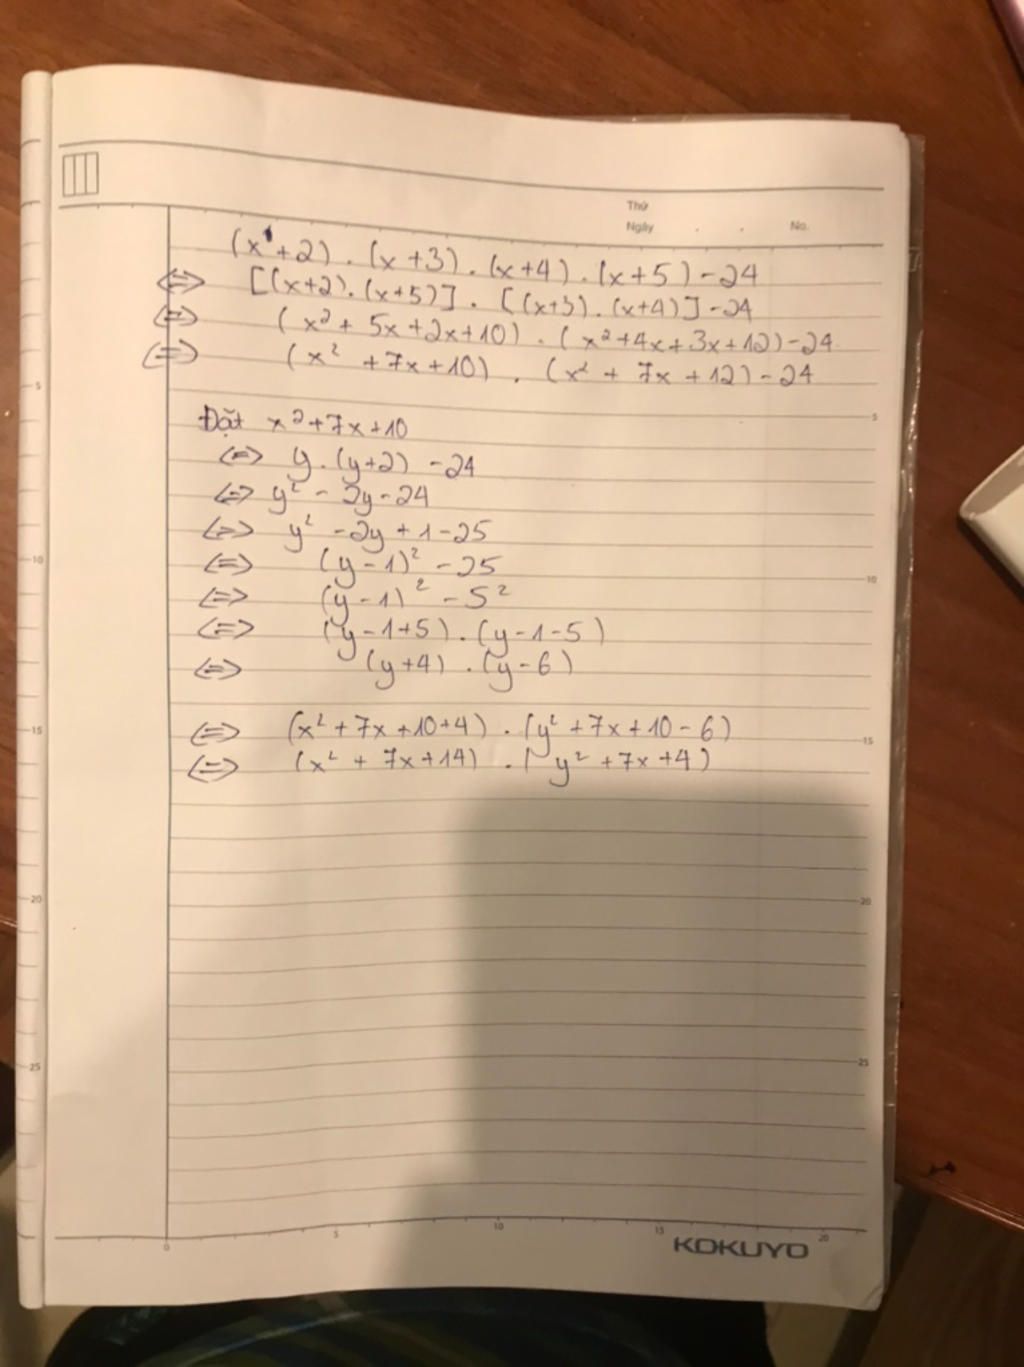 Thứ
Ngày . . No.
(x+2) . (x+3) . (x+4) . (x+5) - 24
<=> [(x+2).(x+5)] . [(x+3).(x+4)] - 24
<=> (x² + 5x + 2x + 10) . (x² + 4x + 3x + 12) - 24
<=> (x² + 7x + 10) . (x² + 7x + 12) - 24
5
5
Đặt x² + 7x + 10
<=> y . (y+2) - 24
<=> y² - 2y - 24
<=> y² - 2y + 1 - 25
10
<=> (y - 1)² - 25
10
<=> (y - 1)² - 5²
<=> (y - 1 + 5) . (y - 1 - 5)
<=> (y + 4) . (y - 6)
15
<=> (x² + 7x + 10 + 4) . (y² + 7x + 10 - 6)
15
<=> (x² + 7x + 14) . (y² + 7x + 4)
20
20
25
25
0 5 10 15 20
KOKUYO